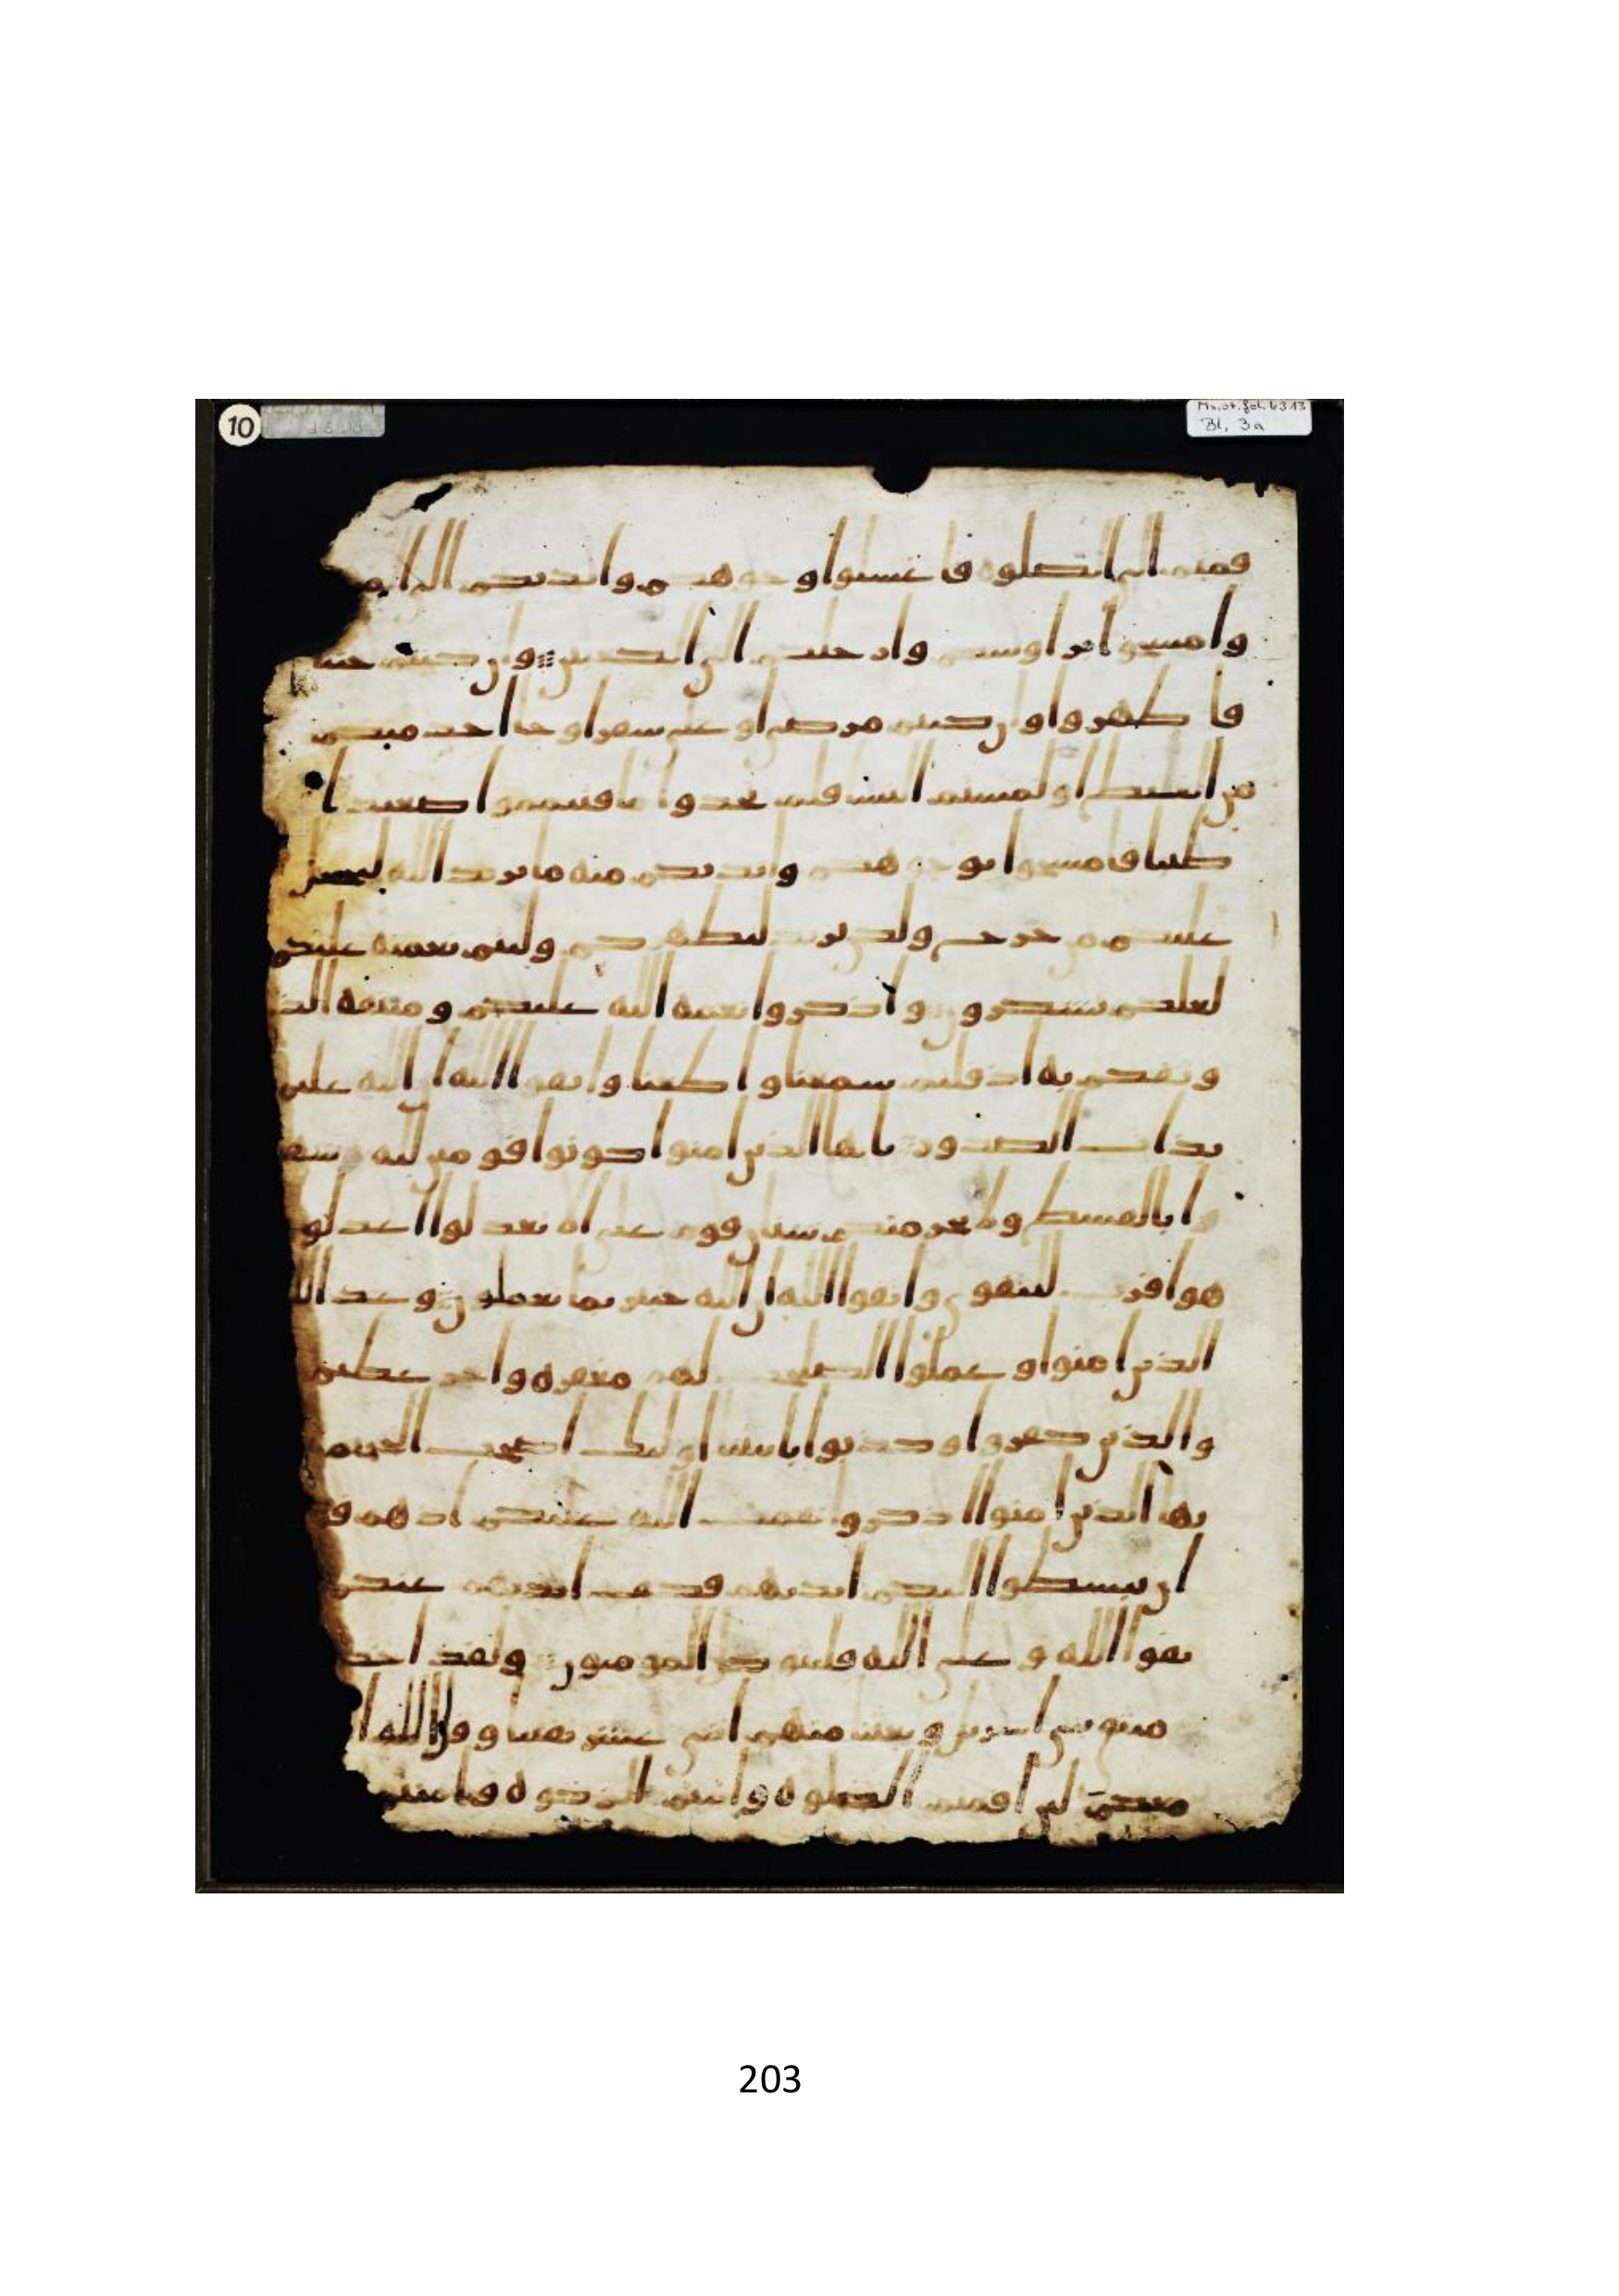 10
Ms.or.fol. 4313
Bl. 3a
قمتم الى الصلوه فاغسلوا وجوهكم وايديكم الى المر
وامسحوا بر اوسكم وارجلكم الى الكعبين وان كنتم جنبا
فاطهروا وان كنتم مرضى او على سفر او جا احد منكم
من الغيط او لمستم النسا فلم تجدوا ما فتيمموا صعيدا
طيبا فامسحوا بوجوهكم وايديكم منه ما يريد الله ليجعل
عليكم من حرج ولكن يريد ليطهركم وليتم نعمته عليكم
لعلكم تشكرون واذكروا نعمه الله عليكم وميثقه الذ
وثقكم به اذ قلتم سمعنا واطعنا واتقوا الله ان الله عليم
بذات الصدور يايها الذين امنوا كونوا قومين لله شهد
ا بالقسط ولا يجرمنكم شنان قوم على الا تعدلوا اعدلو
هو اقرب للتقوى واتقوا الله ان الله خبير بما تعملون وعد الله
الذين امنوا وعملوا الصلحت لهم مغفره واجر عظيم
والذين كفروا وكذبوا بايتنا اوليك اصحب الجحيم
يها الذين امنوا اذكروا نعمت الله عليكم اذ هم قو
ان يبسطوا اليكم ايديهم فكف ايديهم عنكم
تقوا الله وعلى الله فليتوكل المومنون ولقد اخذ
ميثق بنى اسريل وبعثنا منهم اثنى عشر نقيبا وقال الله ا
معكم لين اقمتم الصلوه واتيتم الزكوه وامنتم
203